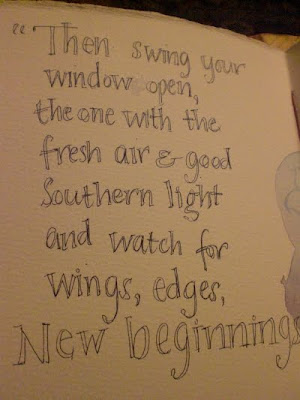 “Then swing your
window open,
the one with the
fresh air & good
Southern light
and watch for
wings, edges,
New beginnings